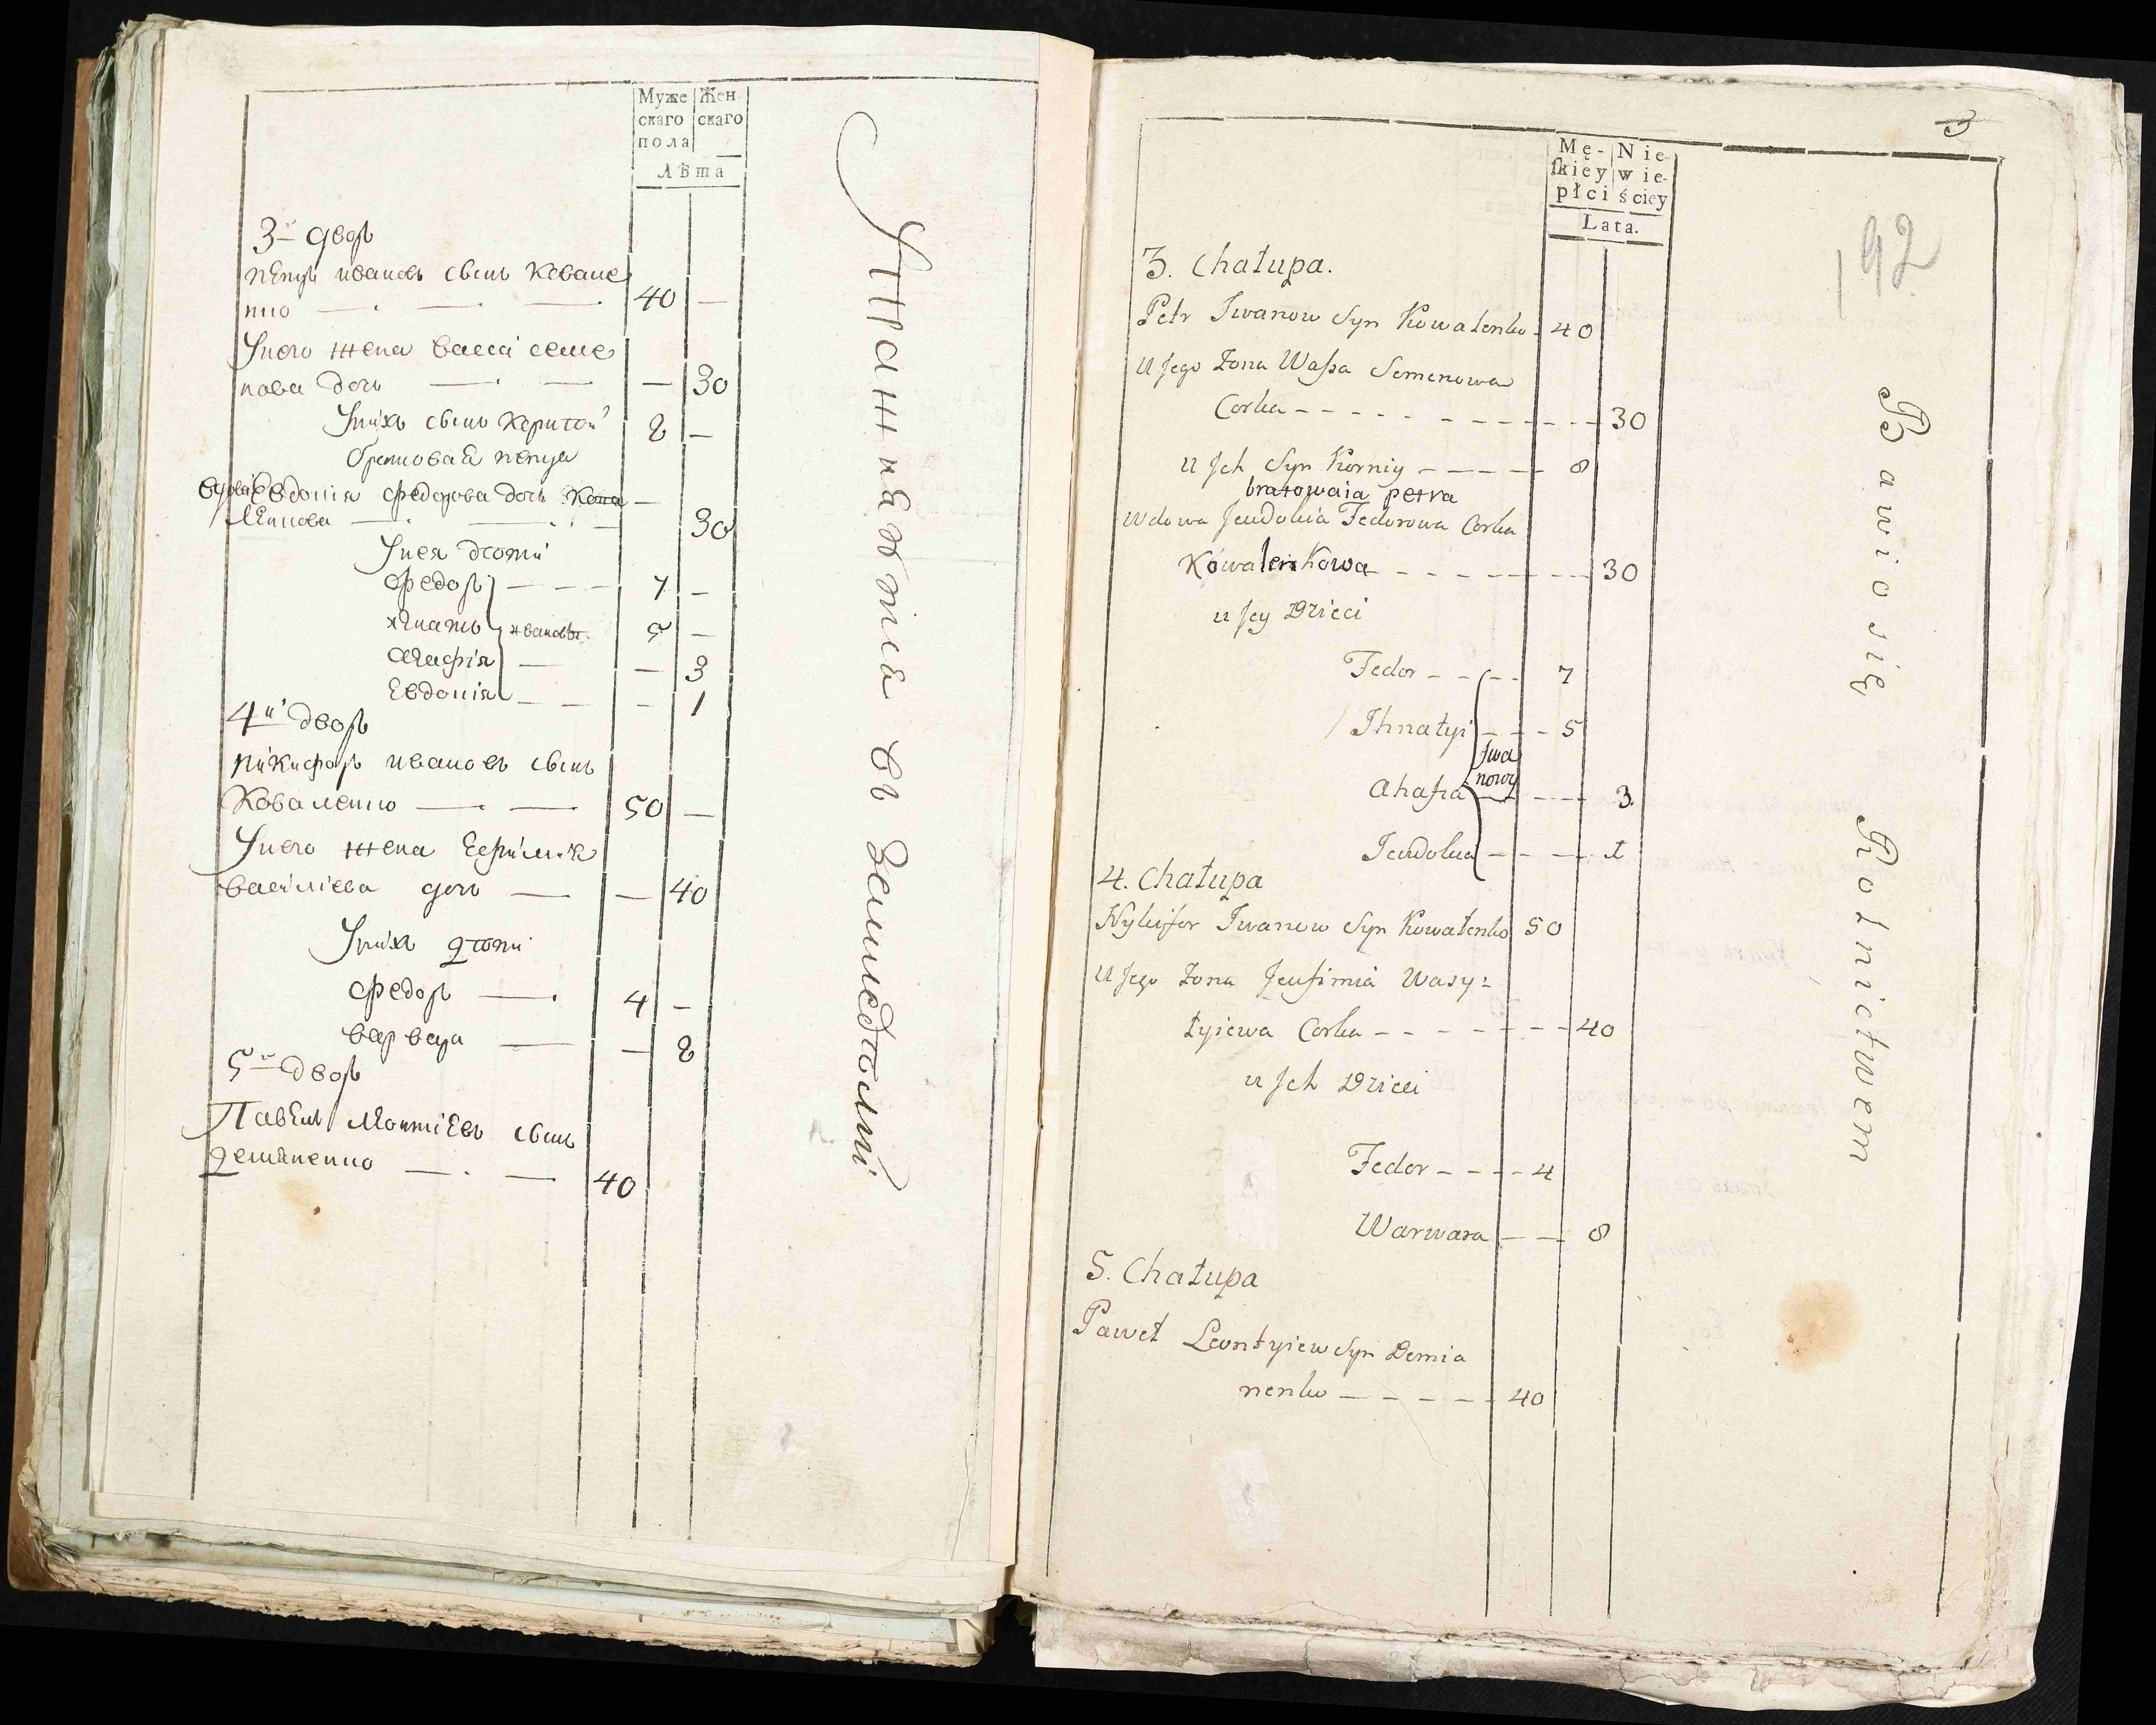 Муже Жен-
скаго скаго
пола
Лѣта
3й дворъ
петръ ивановъ сынъ Ковале
нко 40 —
Унего жена васса семе
нова дочь — 30
Унихъ сынъ корнѣй 8 —
братовая петра
вдова Евдокія федорова дочь Кова —
ленкова 30
Унея дѣти
федоръ 7 —
игнатъ ивановы 5 —
агафія — 3
Евдокія — 1
4й дворъ
никифоръ ивановъ сынъ
Коваленко 50 —
Унего жена Евфимія
васильева дочь — 40
Унихъ дѣти
федоръ 4 —
варвара — 8
5й дворъ
Павелъ Леонтіевъ сынъ
демяненко 40
Упражняются въ земледѣліи
3
192
Mę- Nie-
skiey wie-
płci ściey
Lata.
3. Chałupa.
Petr Iwanow Syn Kowalenko - 40
U Jego Żona Wassa Semenowa
Corka - - - - - - - - - - - 30
u Jch Syn Korniy - - - - - 8
bratowaia petra
Wdowa Jeudokia Fedorowa Corka
Kowalenkowa - - - - - - - - 30
u Jey Dzieci
Fedor - - - - 7
Ihnatyi - - - 5
Iwa
nowy
Ahafia - - - - 3
Jeudokia - - - - 1
4. Chałupa
Nykifor Iwanow Syn Kowalenko 50
U Jego Żona Jeufimia Wasy=
łyiewa Corka - - - - - - - 40
u Jch Dzieci
Fedor - - - - 4
Warwara - - 8
5. Chałupa
Paweł Leontyiew Syn Demia
nenko - - - - - 40
Bawiosię Rolnictwem